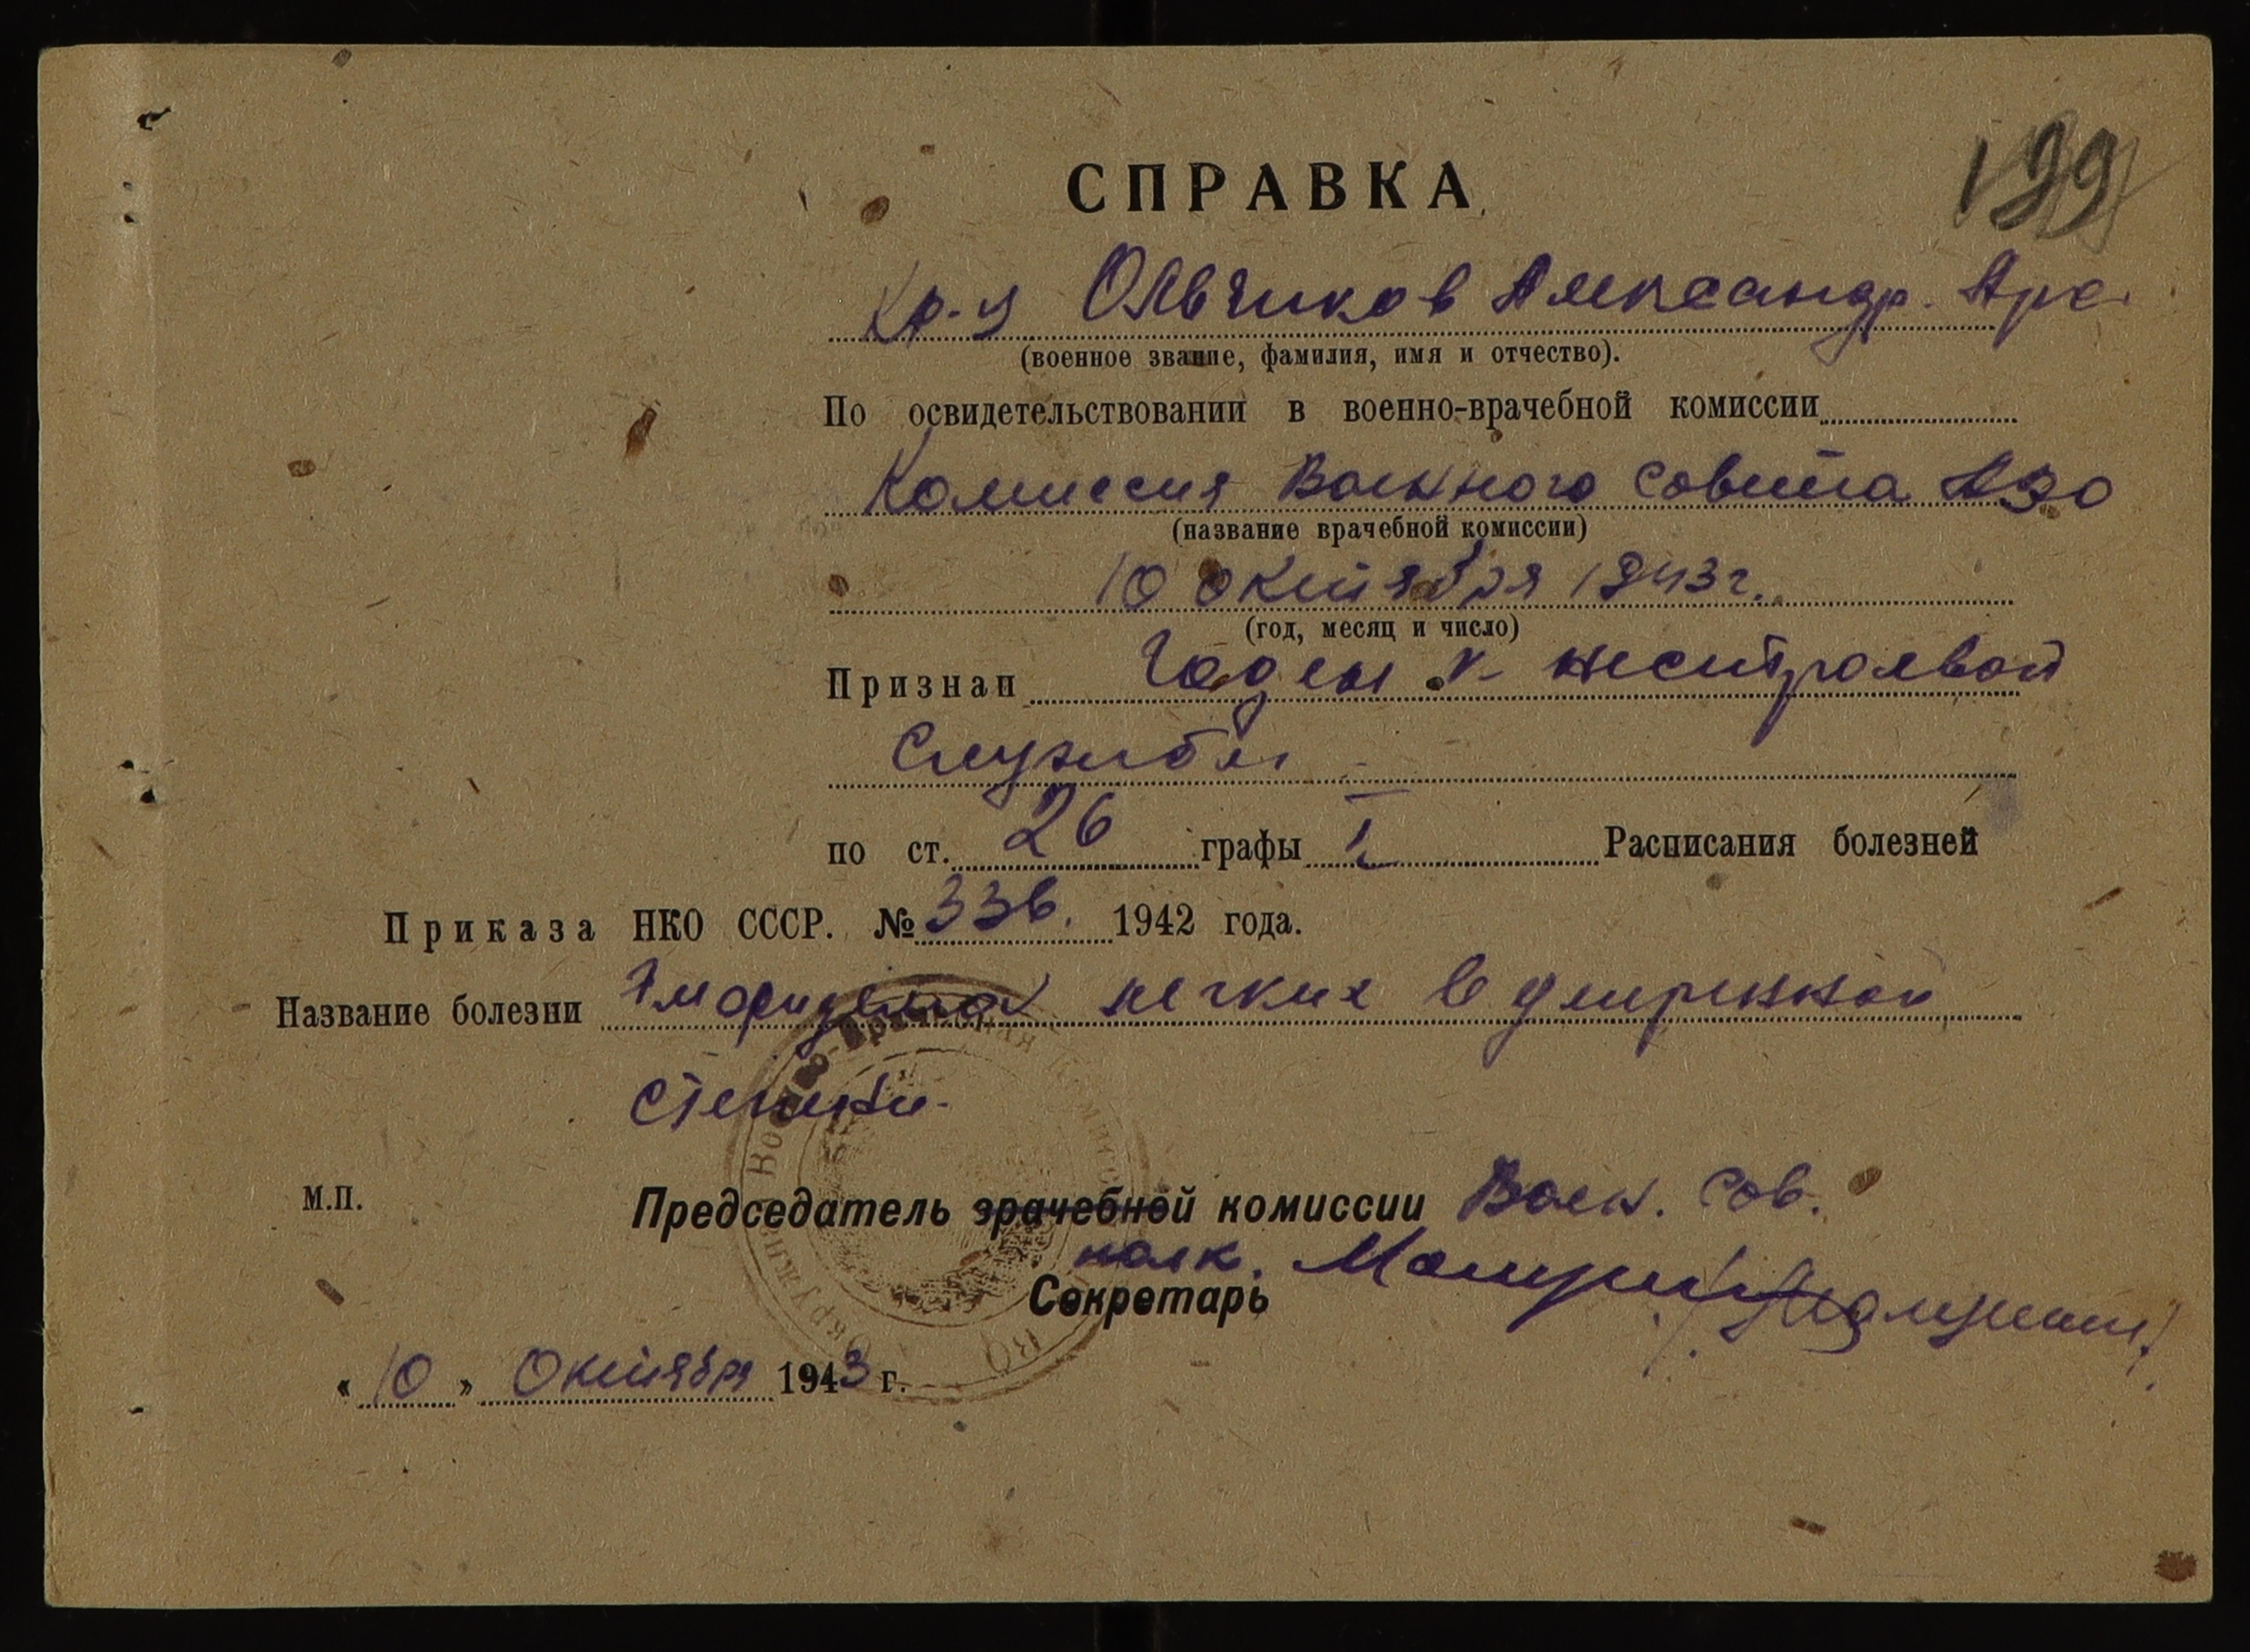 199
СПРАВКА
Кр-ц Ольчиков Александр. Арх.
(военное звание, фамилия, имя и отчество).
По освидетельствовании в военно-врачебной комиссии
Комиссия Военного Совета
(название врачебной комиссии)
10 октября 1943 г.
(год, месяц и число)
Признан Годен к нестроевой
службы
по ст. 26 графы I Расписания болезней
Приказа НКО СССР. № 336. 1942 года.
Название болезни легких
стенки.
М.П. Председатель врачебной комиссии Воен. Сов.
полк.
Секретарь
« 10 » Октября 1943 г.